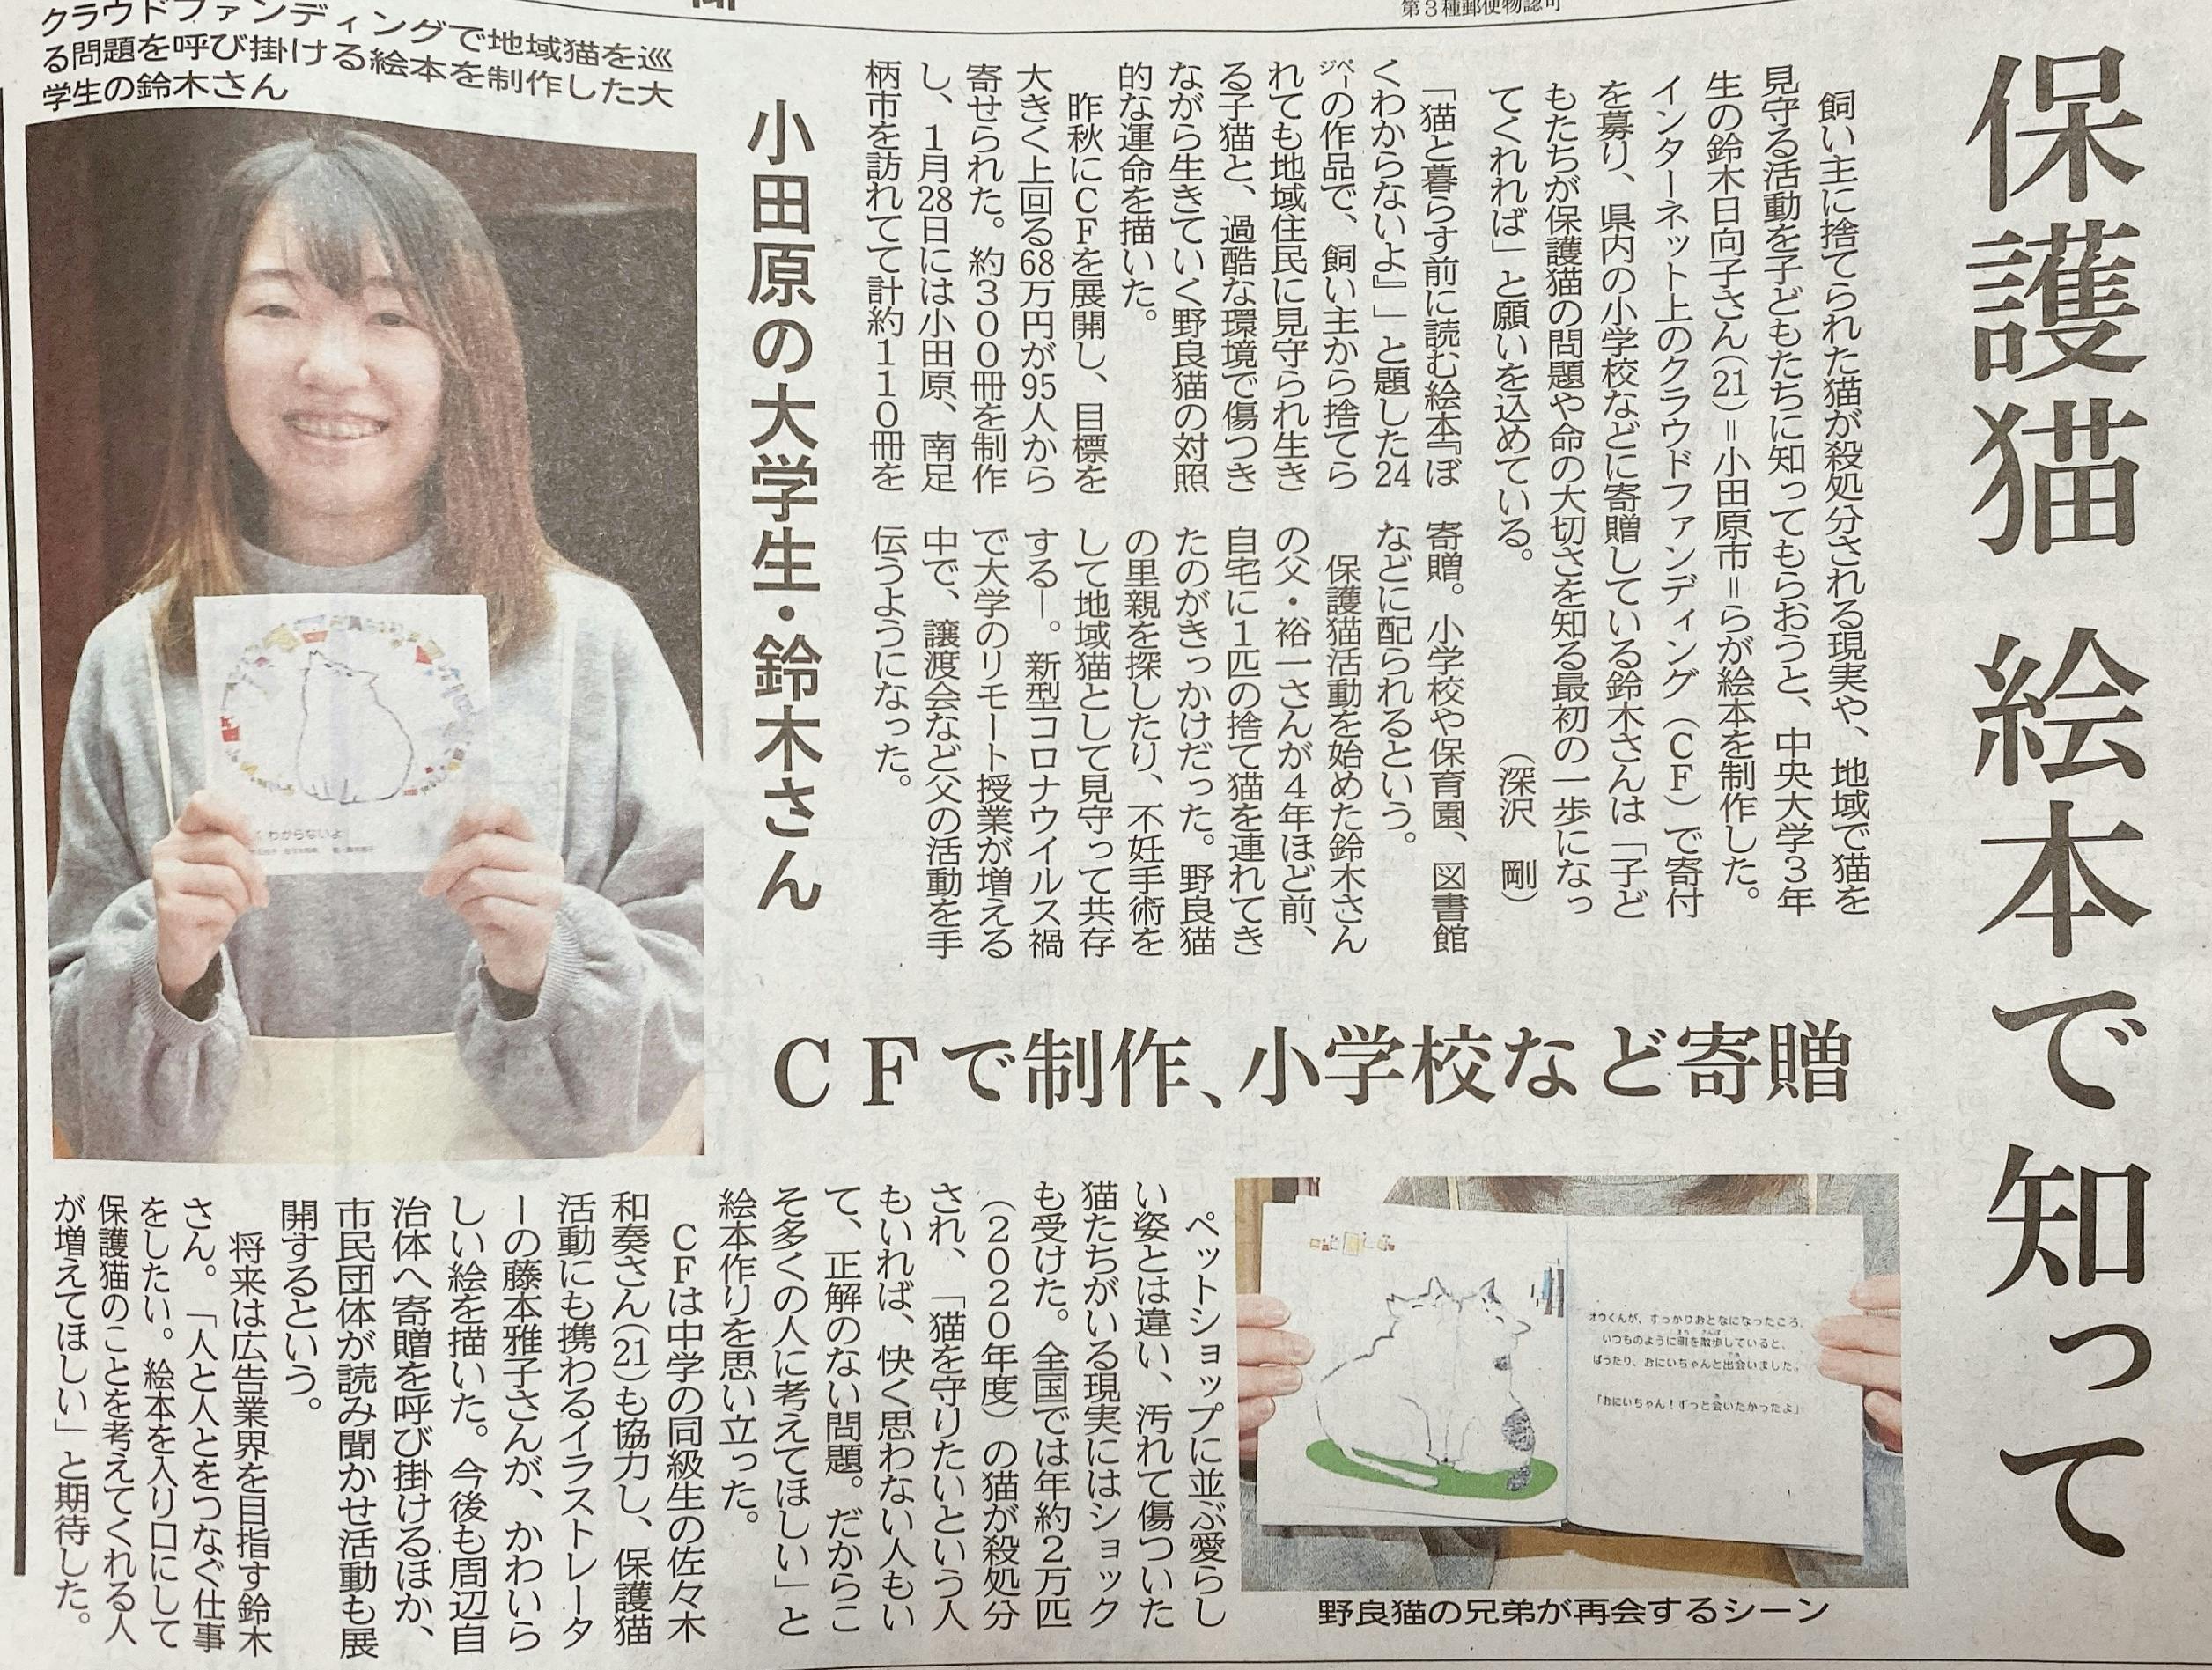 第３種郵便物認可
保護猫 絵本で知って
飼い主に捨てられた猫が殺処分される現実や、地域で猫を
見守る活動を子どもたちに知ってもらおうと、中央大学３年
生の鈴木日向子さん(21)＝小田原市＝らが絵本を制作した。
インターネット上のクラウドファンディング（ＣＦ）で寄付
を募り、県内の小学校などに寄贈している鈴木さんは「子ど
もたちが保護猫の問題や命の大切さを知る最初の一歩になっ
てくれれば」と願いを込めている。
（深沢　剛）
「猫と暮らす前に読む絵本『ぼ
くわからないよ』」と題した24
㌻の作品で、飼い主から捨てら
れても地域住民に見守られ生き
る子猫と、過酷な環境で傷つき
ながら生きていく野良猫の対照
的な運命を描いた。
昨秋にＣＦを展開し、目標を
大きく上回る68万円が95人から
寄せられた。約３００冊を制作
し、１月28日には小田原、南足
柄市を訪れてて計約１１０冊を
寄贈。小学校や保育園、図書館
などに配られるという。
保護猫活動を始めた鈴木さん
の父・裕一さんが４年ほど前、
自宅に１匹の捨て猫を連れてき
たのがきっかけだった。野良猫
の里親を探したり、不妊手術を
して地域猫として見守って共存
する―。新型コロナウイルス禍
で大学のリモート授業が増える
中で、譲渡会など父の活動を手
伝うようになった。
小田原の大学生・鈴木さん
クラウドファンディングで地域猫を巡
る問題を呼び掛ける絵本を制作した大
学生の鈴木さん
わからないよ
ＣＦで制作、小学校など寄贈
オウくんが、すっかりおとなになったころ、
いつものように町を散歩していると、
ばったり、おにいちゃんと出会いました。
「おにいちゃん！ずっと会いたかったよ」
野良猫の兄弟が再会するシーン
ペットショップに並ぶ愛らし
い姿とは違い、汚れて傷ついた
猫たちがいる現実にはショック
も受けた。全国では年約２万匹
（２０２０年度）の猫が殺処分
され、「猫を守りたいという人
もいれば、快く思わない人もい
て、正解のない問題。だからこ
そ多くの人に考えてほしい」と
絵本作りを思い立った。
ＣＦは中学の同級生の佐々木
和奏さん(21)も協力し、保護猫
活動にも携わるイラストレータ
ーの藤本雅子さんが、かわいら
しい絵を描いた。今後も周辺自
治体へ寄贈を呼び掛けるほか、
市民団体が読み聞かせ活動も展
開するという。
将来は広告業界を目指す鈴木
さん。「人と人とをつなぐ仕事
をしたい。絵本を入り口にして
保護猫のことを考えてくれる人
が増えてほしい」と期待した。